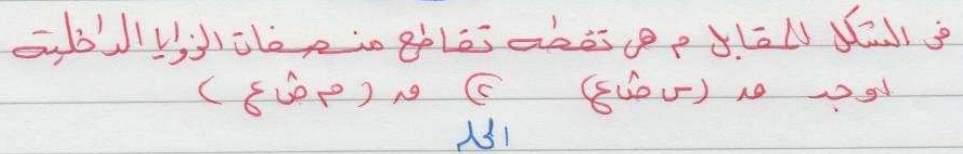 فى الشكل المقابل م هى نقطه تقاطع منصفات الزوايا الداخلية
اوجد ق (س ض ع) ٢) ق (م ض ع)
الحل